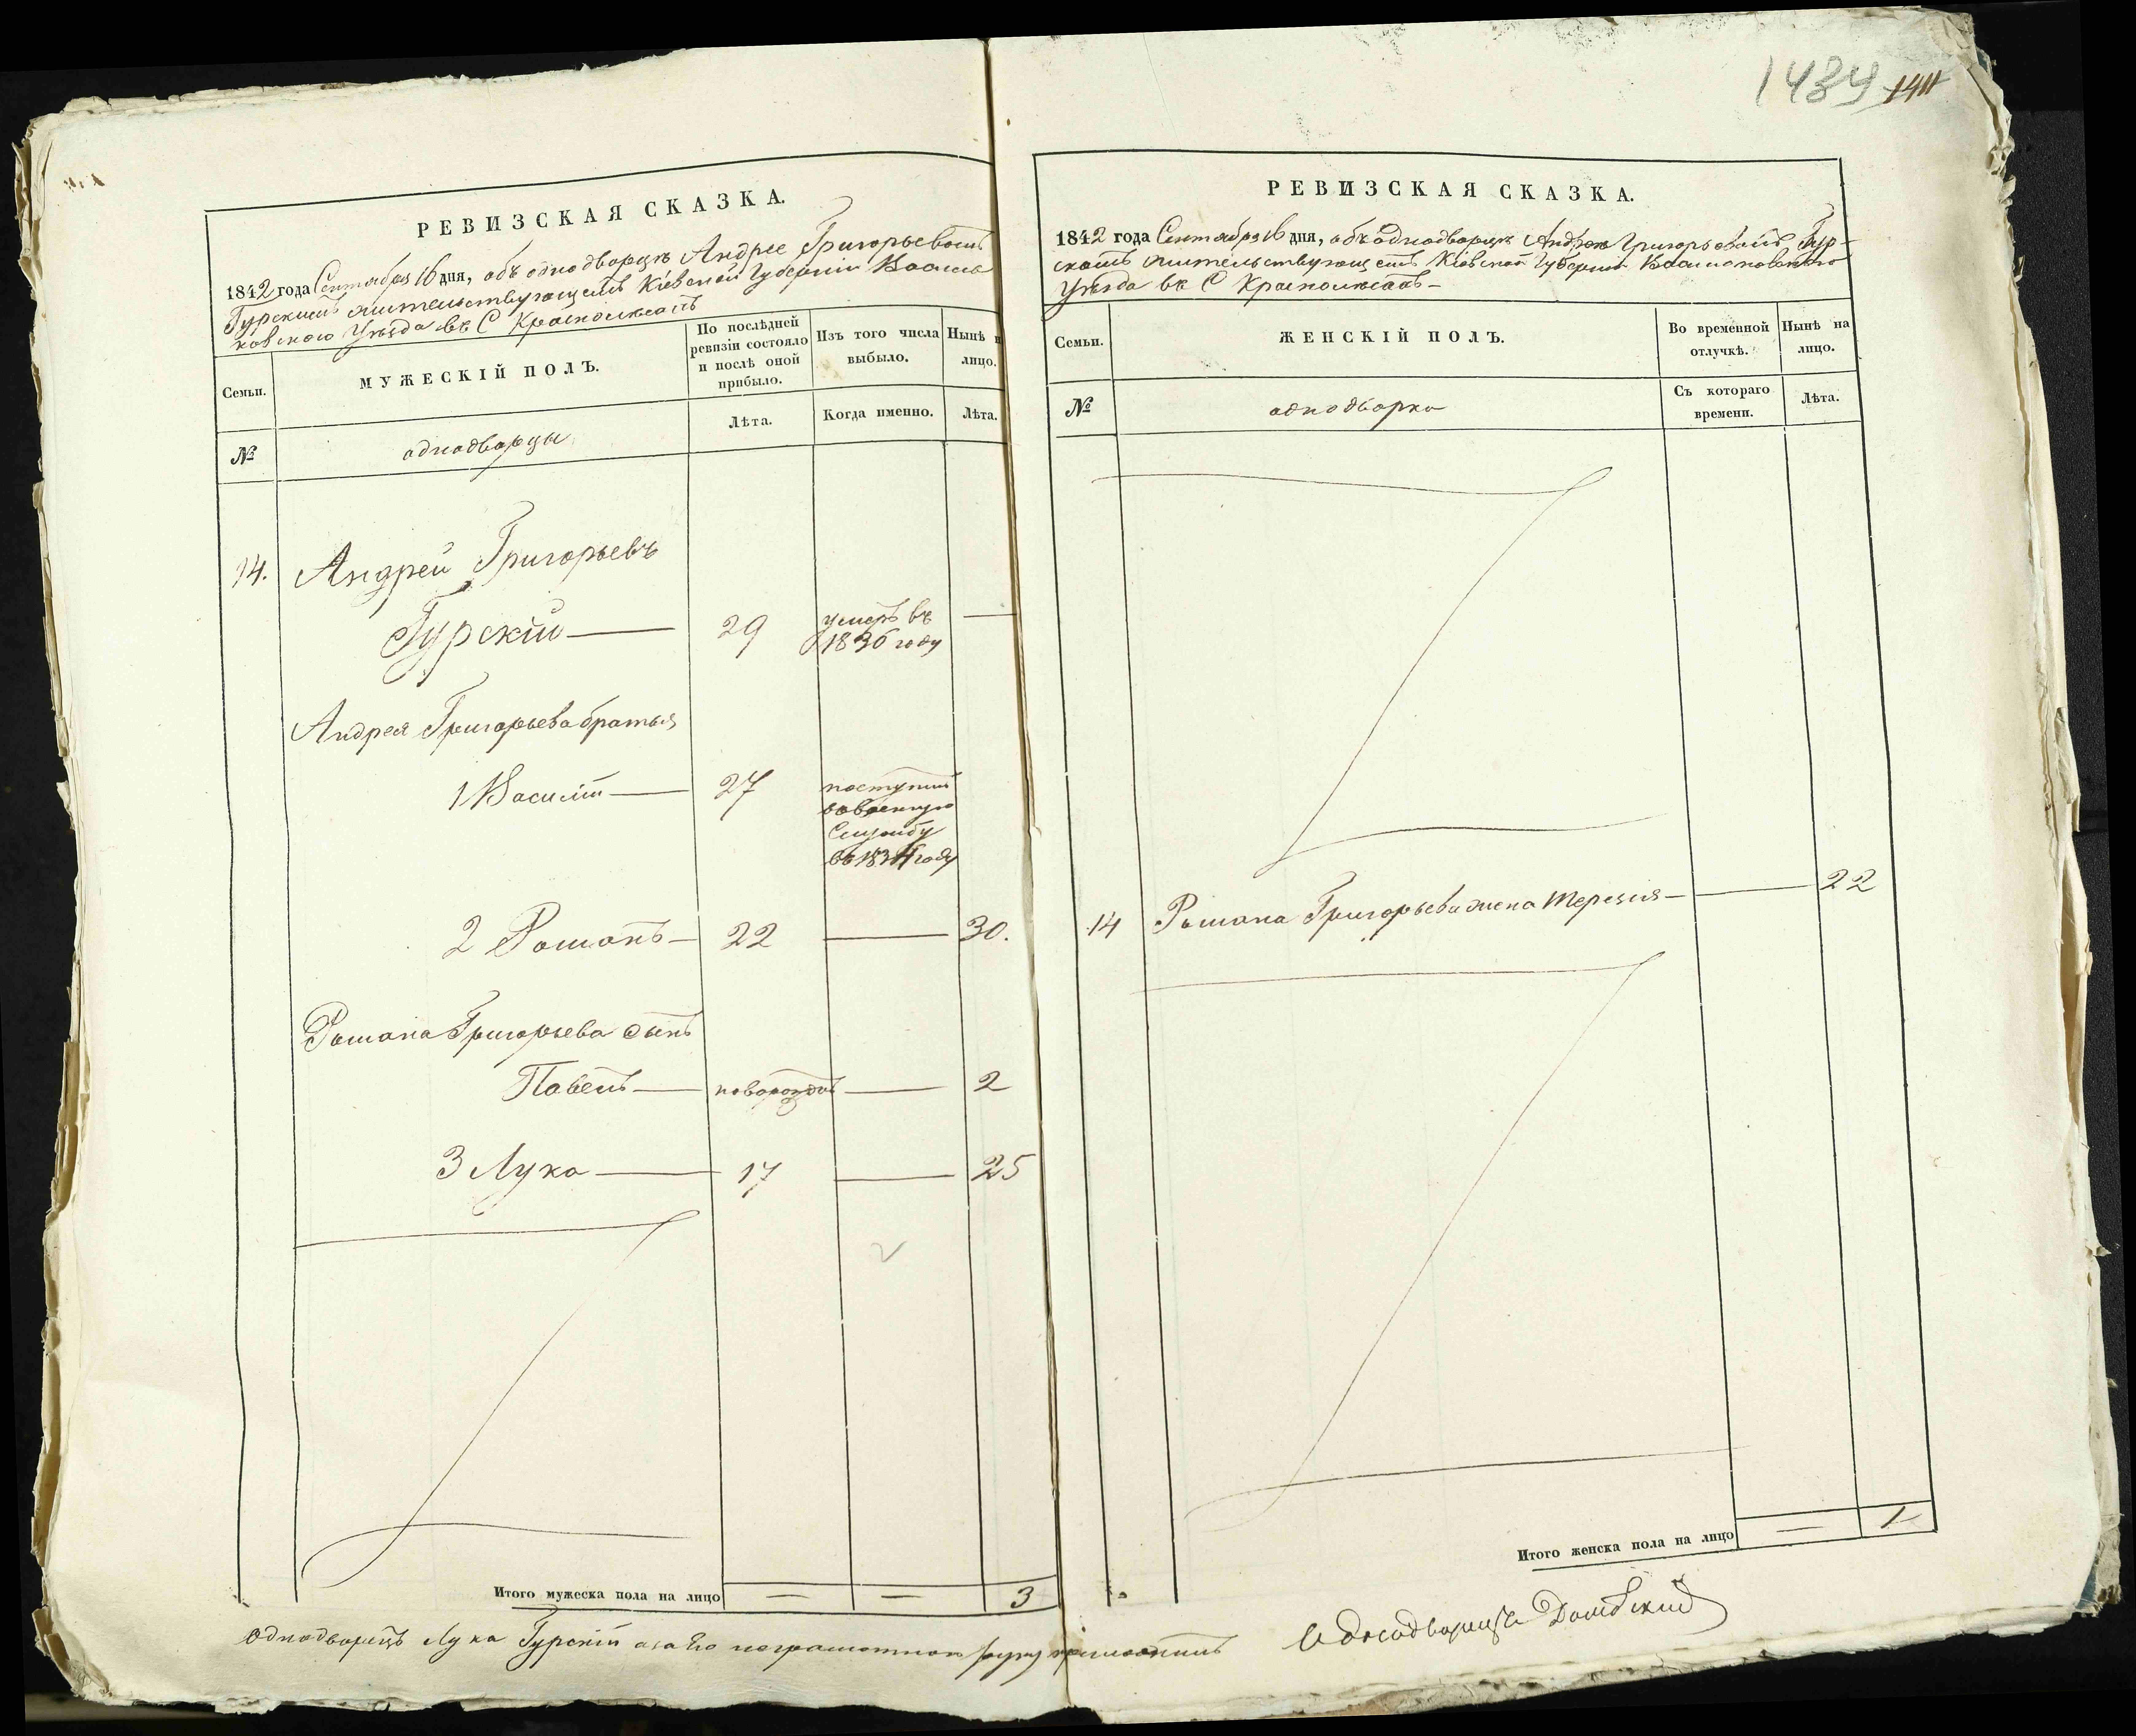 1439 1411
РЕВИЗСКАЯ СКАЗКА.
1842 года Сентября 16 дня, объ однодворцѣ Андрее Григорьевомъ
Гурскимъ жительствующемъ Кіевской Губерніи Василь
ковского Уѣзда въ С
Семьи.
МУЖЕСКІЙ ПОЛЪ.
По послѣдней ревизіи состояло и послѣ оной прибыло.
Изъ того числа выбыло.
Нынѣ н лицо.
№
однодворцы
Лѣта.
Когда именно.
Лѣта.
14. Андрей Григорьевъ
Гурскій — 29 умеръ въ —
1836 году
Андрея Григорьева братья
1 Василій — 27 поступилъ
въ военную
Службу
въ 1834 году
2 Романъ — 22 — 30.
Романа Григорьева сынъ
Павелъ — новорожден — 2
3 Лука — 17 — 25
Итого мужеска пола на лицо = = 3
Однодворецъ Лука Гурскій а за его неграмотного руку приложилъ
РЕВИЗСКАЯ СКАЗКА.
1842 года Сентября 16 дня, объ однодворцѣ Андрею Григорьевомъ Гур-
скомъ жительствующемъ Кіевской Губерніи Васильковского
Уѣзда въ С
Семьи.
ЖЕНСКІЙ ПОЛЪ.
Во временной отлучкѣ.
Нынѣ на лицо.
№
однодворки
Съ котораго времени.
Лѣта.
14 Романа Григорьева жена Терезія — — 22
Итого женска пола на лицо = 1
Однодворецъ Домбский